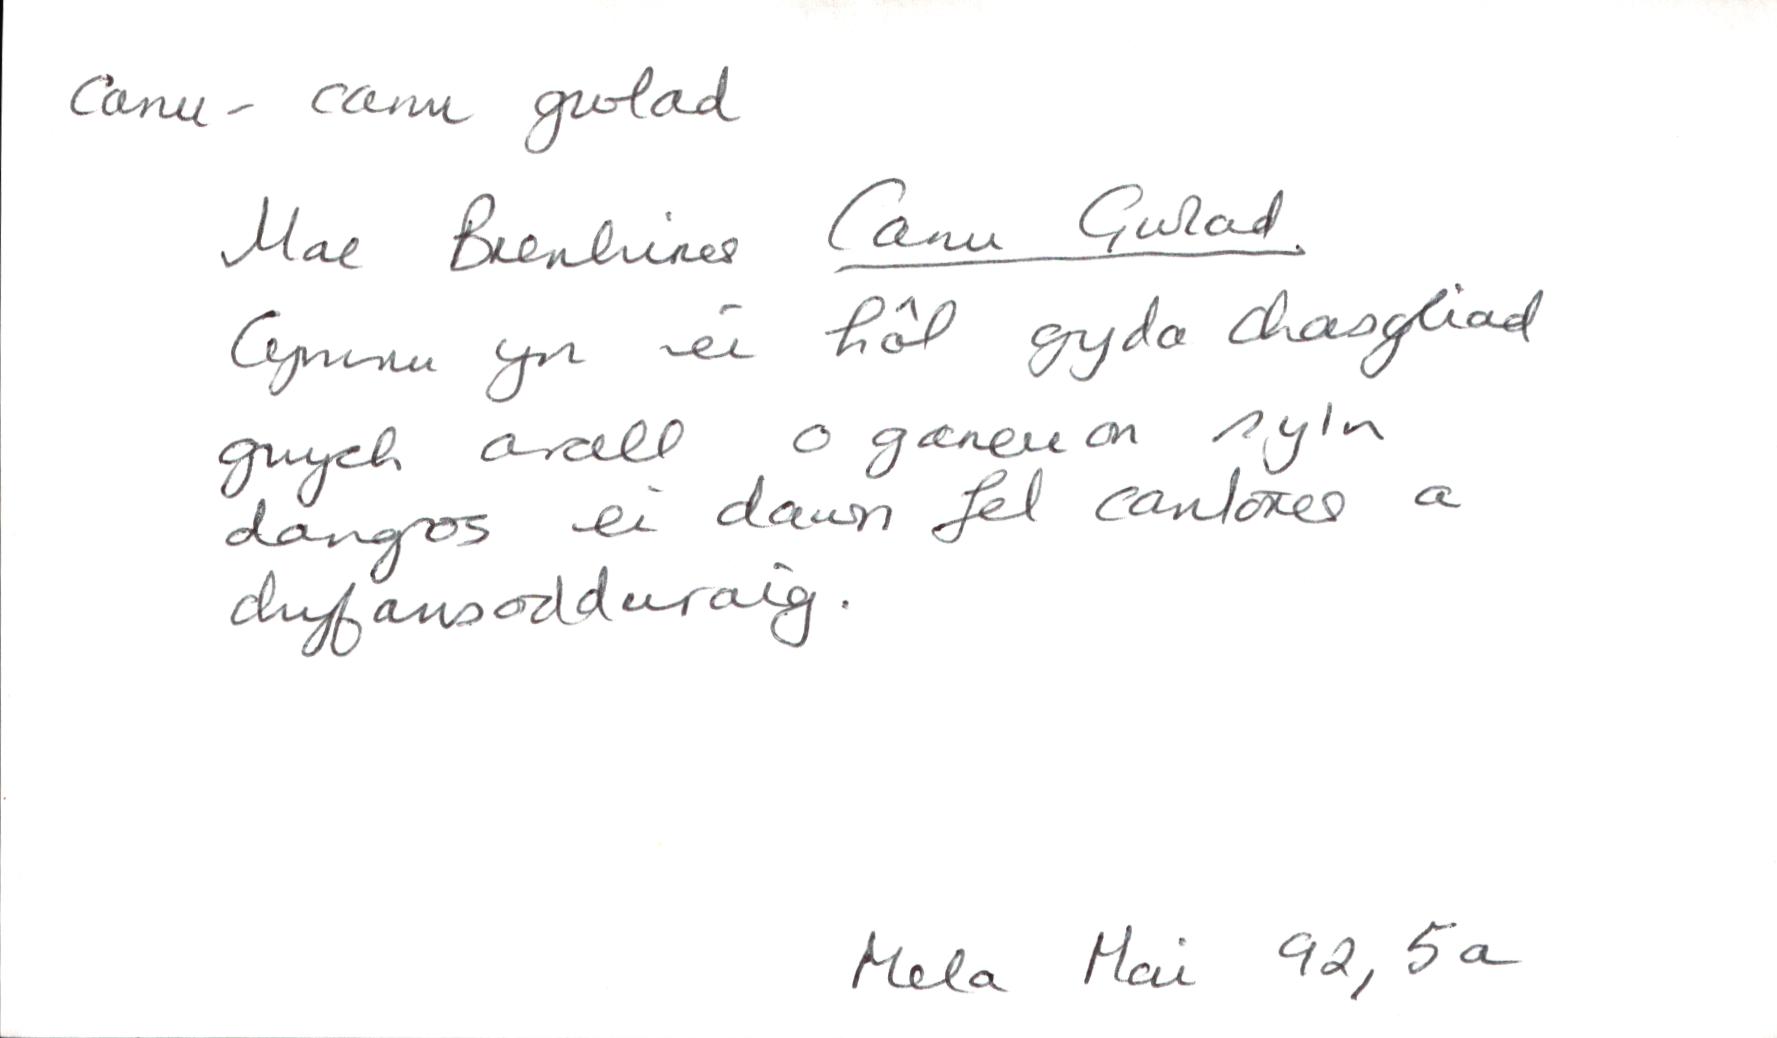 Canu - canu gwlad
Mae Brenhines Canu Gwlad
Cymru yn ei hôl gyda chasgliad
gwych arall o ganeuon sy'n
dangos ei dawn fel cantores a
chyfansodduraig.
Mela Mai 92, 5a